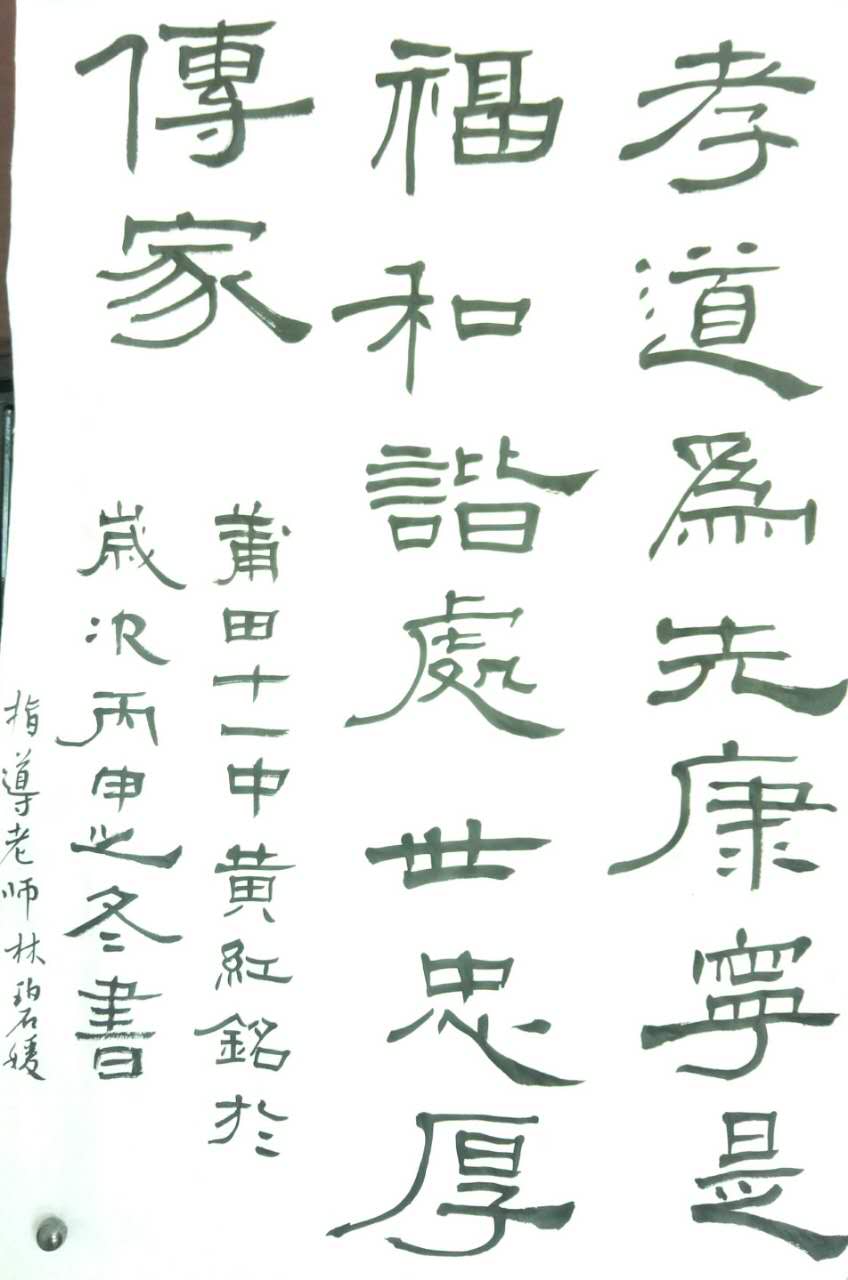 孝道為先康寧是
福和諧處世忠厚
傳家
莆田十一中黄紅銘於
歲次丙申之冬書
指導老师林碧媛